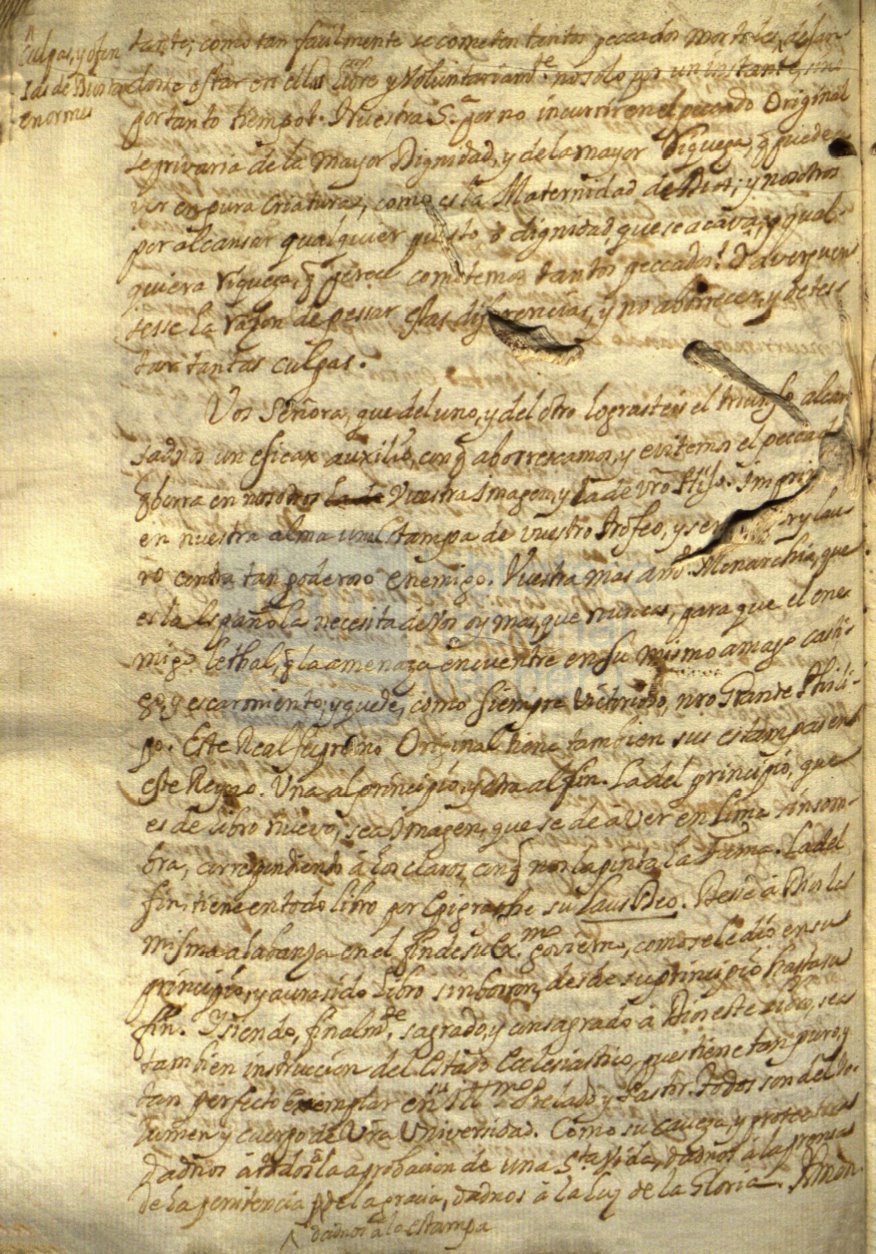 culpas, y ofen
sas de Dios tan
enormes
tante; como tan facilmente se cometen tantos peccados mortales,
estar en ellos libre y voluntariamte. no solo por un instante,
por tanto tiempo? Nuestra Sa. por no incurrir en el peccado Original
se privaria de la mayor Dignidad, y de la mayor riqueza, q puede
en pura criatura, como es la Maternidad de Dios; y nosotros
por alcansar qualquier puesto, o dignidad, que se acava, y qual-
quiera riqueza, q perece cometemos tantos peccados?
la razon de pessar estas diferencias, y no aborrecer, y detes
tar tantas culpas.
Vos Señora, que del uno, y del otro lograsteis el triunfo, alcan
sadnos un eficax auxilio, con q aborrescamos, y evitemos el peccado
q borra en nosotros Vuestra Imagen, y la de Vro Hijo. Imprimi
en nuestra alma una Estampa de vuestro trofeo, y
ro contra tan poderoso enemigo. Vuestra mas amda. Monarchia, que
es la Española necesita de Vos oy mas, que nunca, para que el ene
migo lethal, q la amenaza encuentre en su mismo amago casti-
go, y escarmiento; y quede, como siempre victorioso, nro Grande Phili-
po. Este Real Original tiene tambien sus estampas en
este Reyno. Una al principio, y otra al fin. La del principio, que
es de libro nuevo, sea Imagen, que se de a ver en Lima sin som-
bra, correspondiendo á los claros, con q nos la pinta la Fama. La del
fin, tiene en todo libro por Epigraphe su Laus Deo. Deve á Dios las
misma alabanza en el fin de su Exmo. govierno, como se le dió en su
principio, y aura sido libro sin borron, desde su principio hasta su
fin. Y siendo, finalmte. sagrado, y consagrado á Dios este libro, sea
tambien instruccion del Estado Ecclesiastico, pues tiene tan puro, y
tan perfecto Exemplar en su Illmo. Prelado y Pastor. Todos son del Vo-
lumen y cuerpo de Vra Universidad. Como su caveza, y protectora
dadnos á todos la aprobacion de una Sta. Vida, dadnos á la prensa
de la penitencia de la gracia, dadnos á la luz de la Gloria. Amen.
dadnos a la estampa